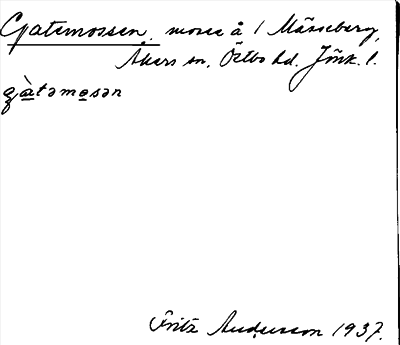 Gatemossen, mosse å 1 Mässeberg,
Åkers sn, Östbo hd. Jönk. l.
gàtəmosən
Fritz Andersson 1937.